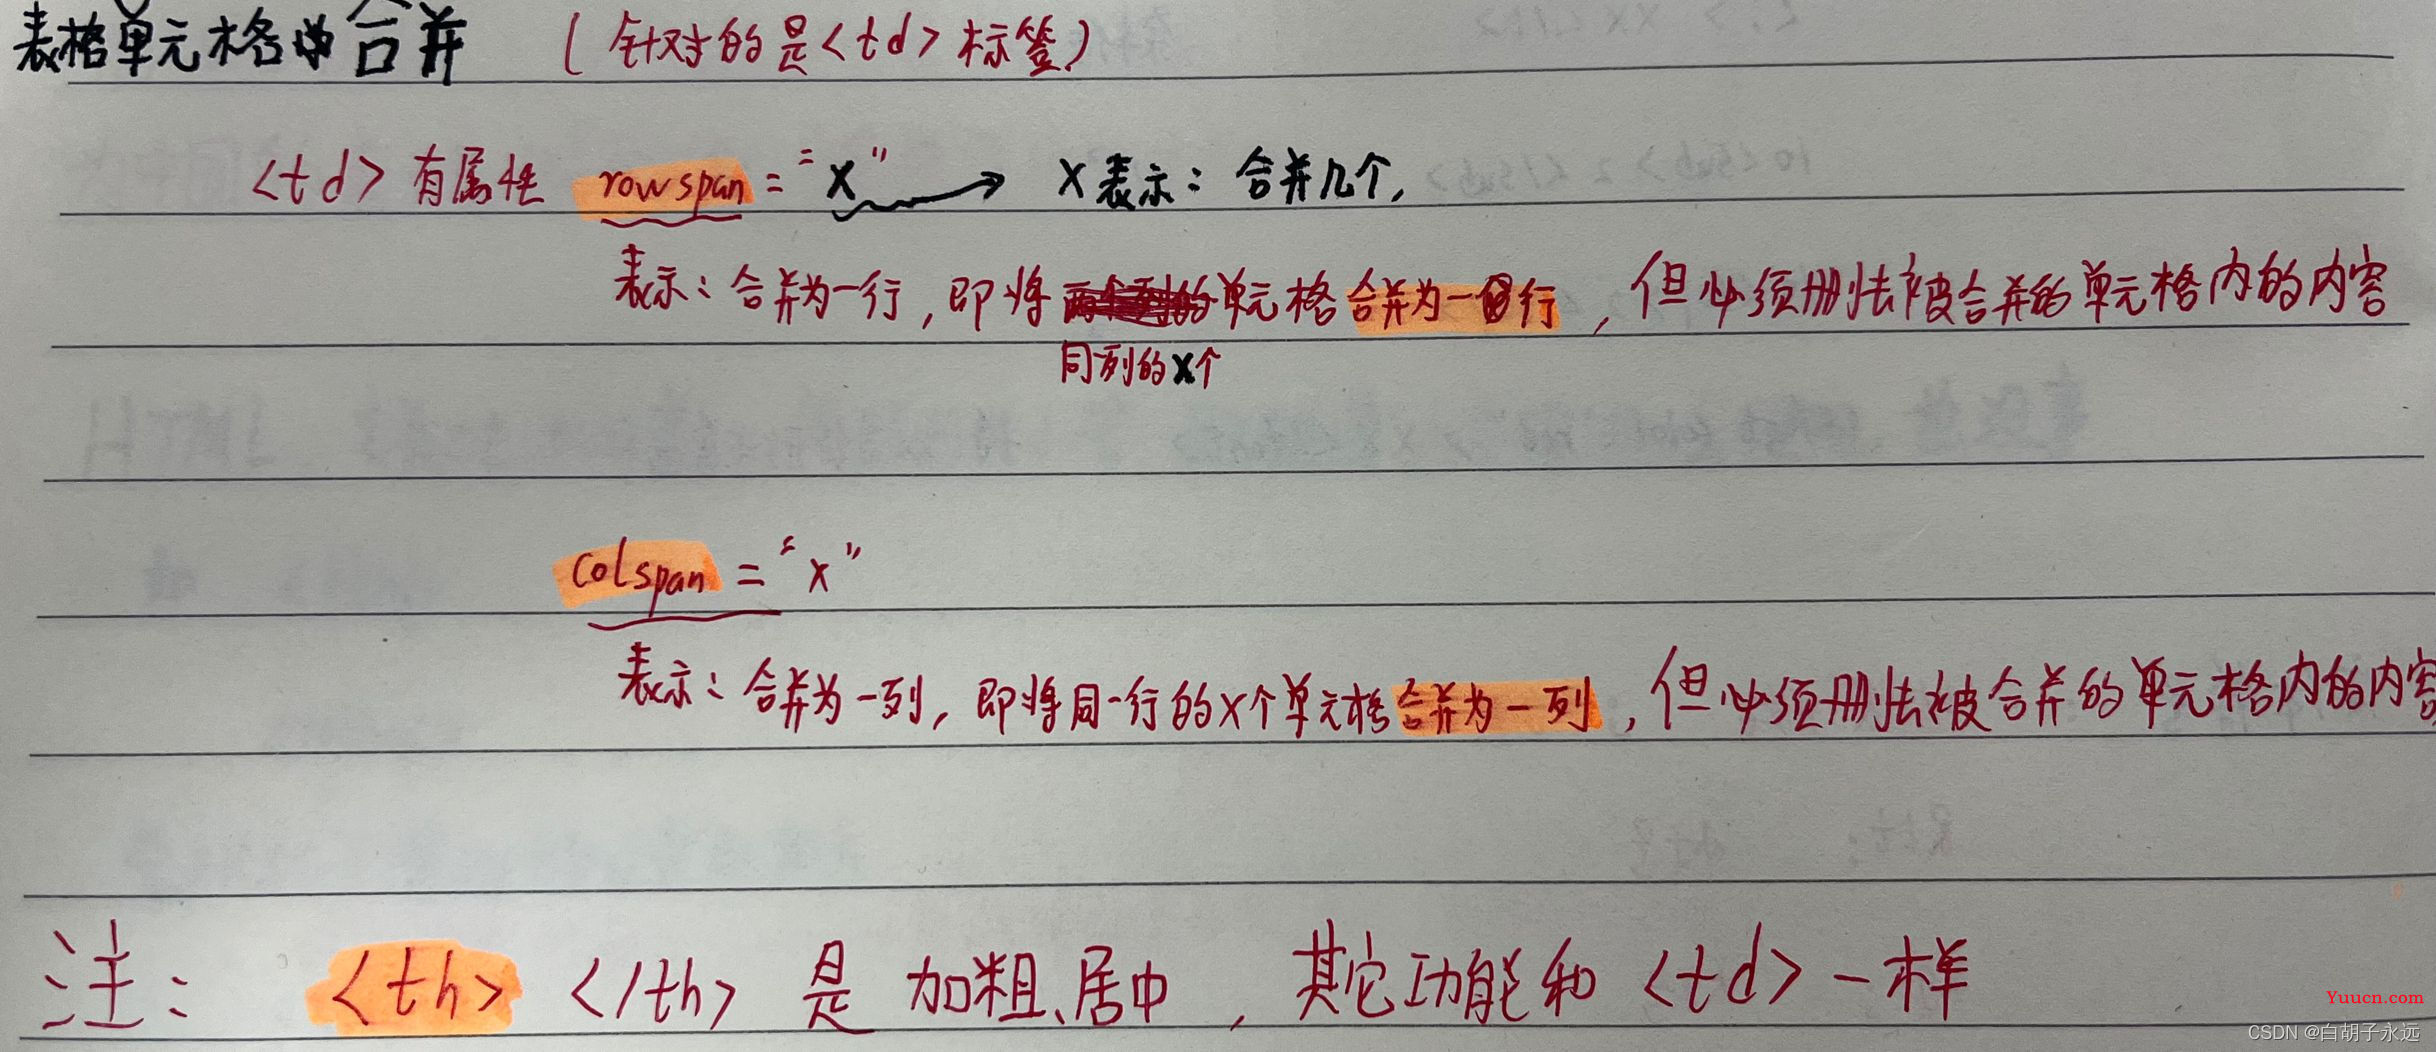 表格单元格的合并 (针对的是<td>标签)
<td>有属性 rowspan="x" → x表示：合并几个,
表示：合并为一行, 即将单元格合并为一行, 但必须删去被合并的单元格内的内容
同列的x个
colspan="x"
表示：合并为一列, 即将同一行的x个单元格合并为一列, 但必须删去被合并的单元格内的内容
注： <th> </th> 是 加粗、居中, 其它功能和<td>一样
Yuucn.com
CSDN @白胡子永远